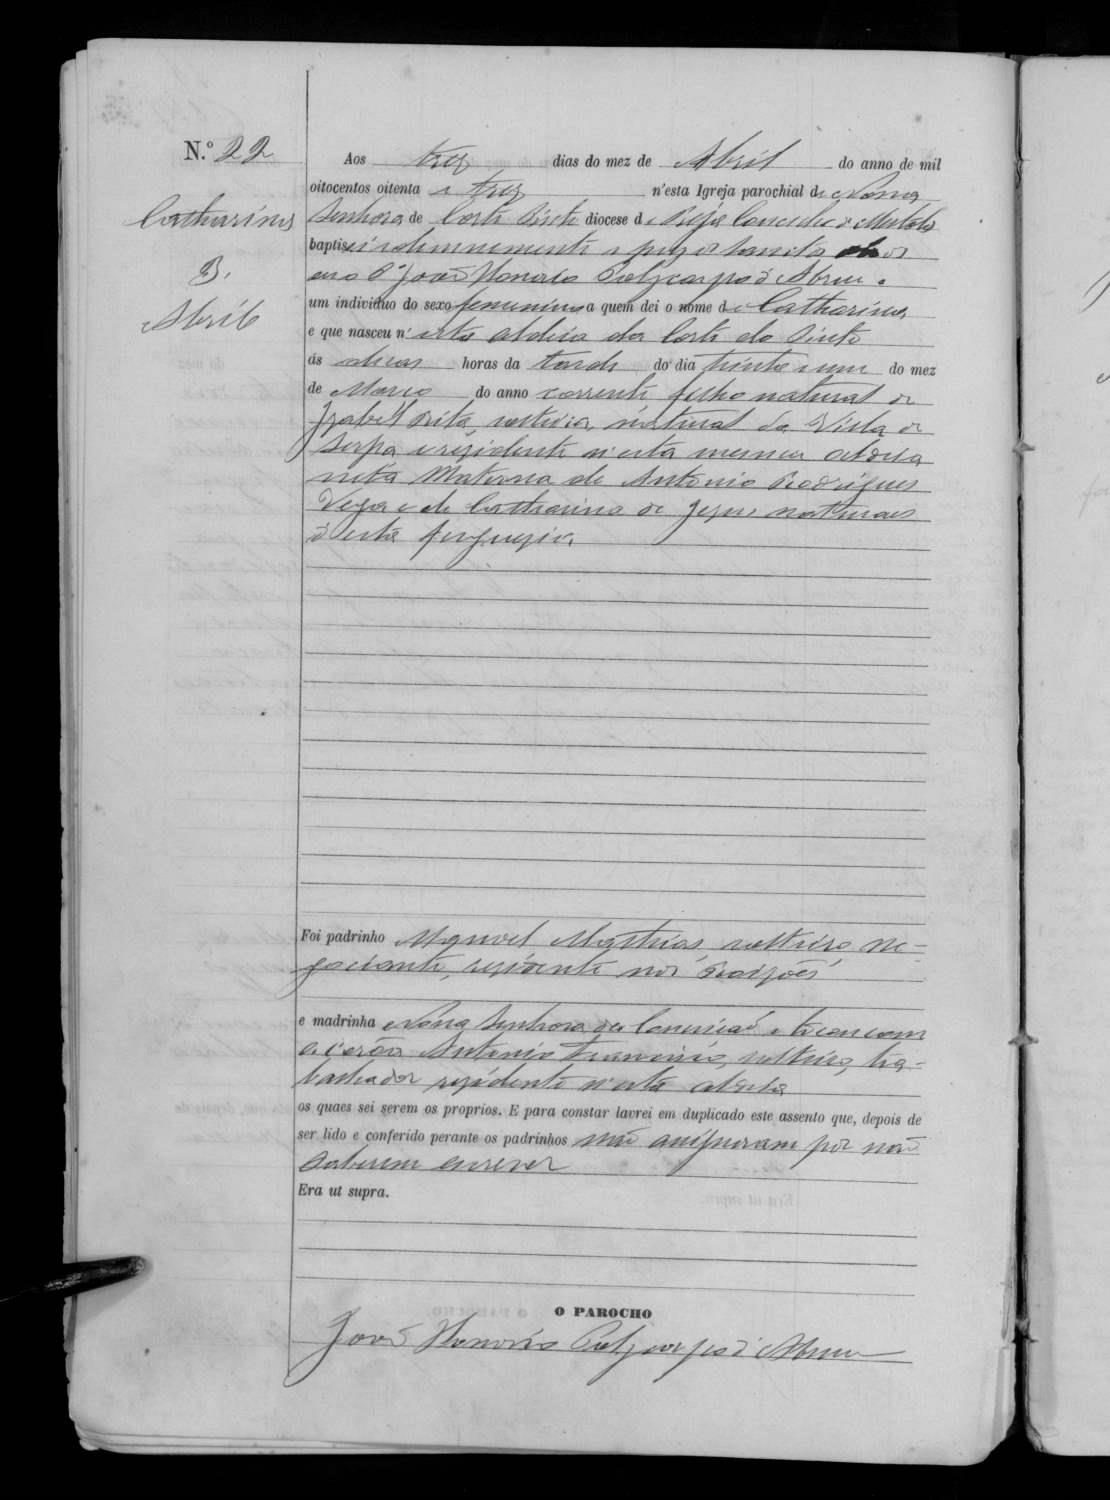 N.º 22
Catharina
B.
Abril
Aos trez dias do mez de Abril do anno de mil
oitocentos oitenta e trez n'esta Igreja parochial de Nossa
Senhora de Corte Pinto diocese de Beja Concelho de Mertola
baptisei solemnemente e puz os Santos oleos
eu o P.e João Honorio Policarpo d'Abreu a
um individuo do sexo femenino a quem dei o nome de Catharina
e que nasceu n'esta aldeia da Corte do Pinto
ás horas da tarde do dia trinta e um do mez
de Março do anno corrente filho natural de
Izabel Rita, solteira, natural da Villa de
Serpa e rezidente n'esta mesma aldeia
neta Materna de Antonio Rodrigues
Veja e de Catharina de Jezus naturaes
d'esta freguezia
Foi padrinho Manoel Mathias, solteiro, ne-
gociante, rezidente nos
e madrinha Nossa Senhora da Conceicaõ e tocou com
a corôa Antonio Francisco, solteiro, tra-
balhador rezidente n'esta aldeia
os quaes sei serem os proprios. E para constar lavrei em duplicado este assento que, depois de
ser lido e conferido perante os padrinhos não assignaram por não
saberem escrever
Era ut supra.
O PAROCHO
João Honorio Policarpo d'Abreu